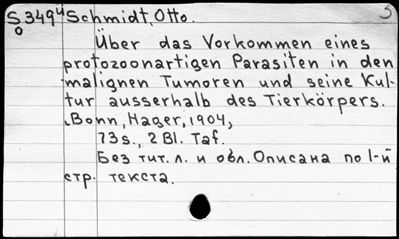 S349ч Schmidt, Otto. 3
о
Über das Vorkommen eines
protozoonartigen Parasiten in den
malignen Tumoren und seine Kul-
tur ausserhalb des Tierkörpers.
Bonn, Hager, 1904,
73s., 2 Bl. Taf.
Без тит. л. и обл. Описана по 1-й
стр. текста.